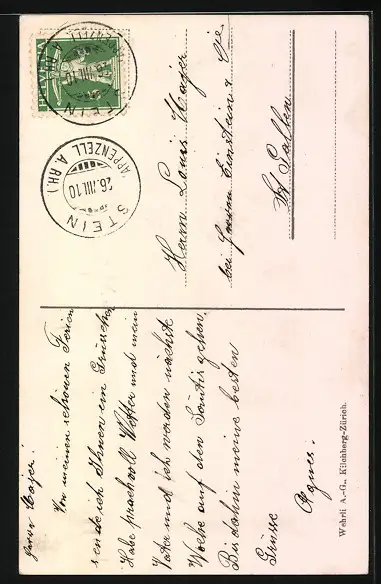 HELVETIA
STEIN
26.VIII.10
(APPENZELL A.RH.)
Herrn Louis Hajer
bei Herren Einstein & Cie
St Gallen
Herr Hajer!
Von meinen schönen Ferien
sende ich Ihnen ein Grüsschen
Habe prachtvoll Wetter und mein
Vater und ich werden nächste
Woche auf den Säntis gehen
Bis dahin meine besten
Grüsse
Agnes.
Wehrli A.-G., Kilchberg-Zürich.